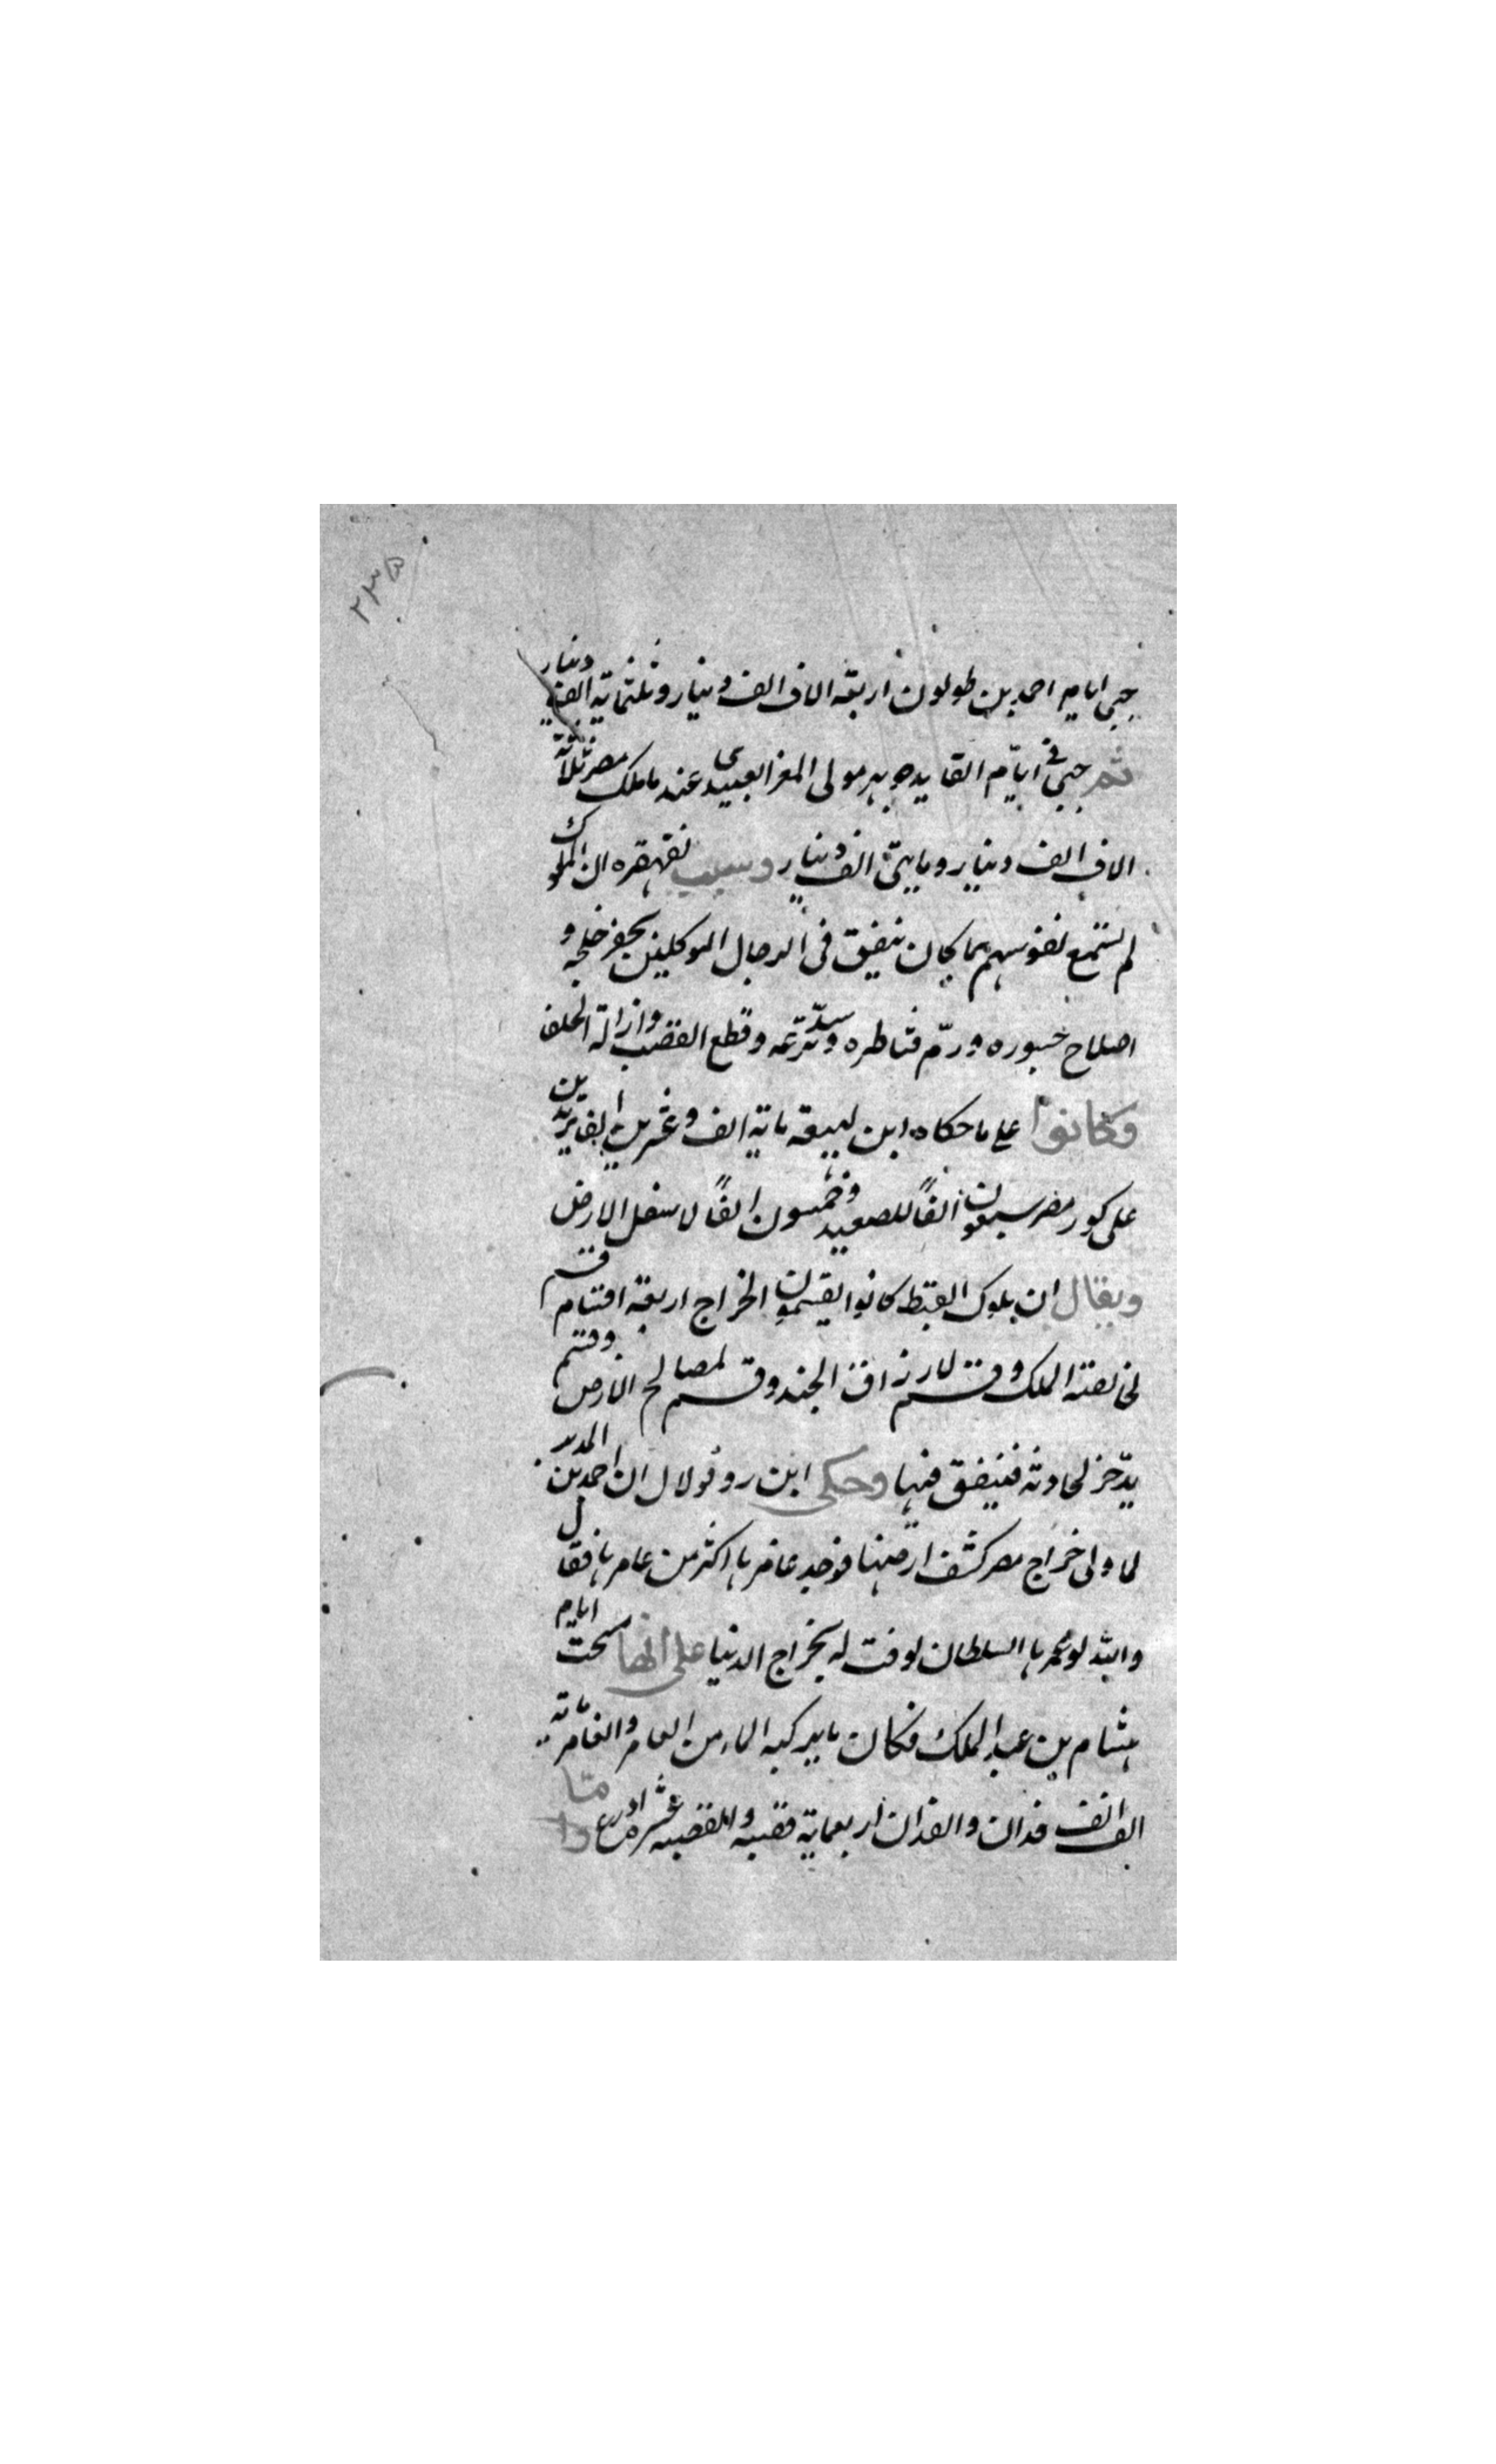 ٢٣٥
جبى ايام احمد بن طولون اربعة الاف الف دينار وثلثماية الف دينار
ثم جبى فى ايّام القايد جوهر مولى المعز العبيدى عند ما ملك مصر ثلاثة
الاف الف دينار ومايتى الف دينار وسبب تقهقره ان الملوك
لم تستمع نفوسهم بما كان ينفق فى الرجال الموكلين بحفر خلجه و
اصلاح جسوره ورمّ قناطره وسدّ ترعه وقطع القضب وازالة الحلفا
وكانوا على ما حكاه ابن لهيعه ماية الف وعشرين الفا مرتبين
على كور مصر سبعون الفاً للصعيد وخمسون الفاً لاسفل الارض
ويقال ان ملوك القبط كانوا يقسمون الخراج اربعة اقسام قسم
لخاصة الملك وقسم لارزاق الجند وقسم لمصالح الارض وقسم
يدّخر لحادثة فينفق فيها وحكى ابن روفولال ان احمد بن المدبر
لما ولى خراج مصر كشف ارضها فوجد غامرها اكثر من عامرها فقال
والله لو عمرها السلطان لوفت له بخراج الدنيا على انها مسحت ايام
هشام بن عبد الملك فكان ما يركبه الماء من العامر والغامر ماية
الف الف فدان والفدان اربعماية قصبه والقصبه عشرة اذرع واما